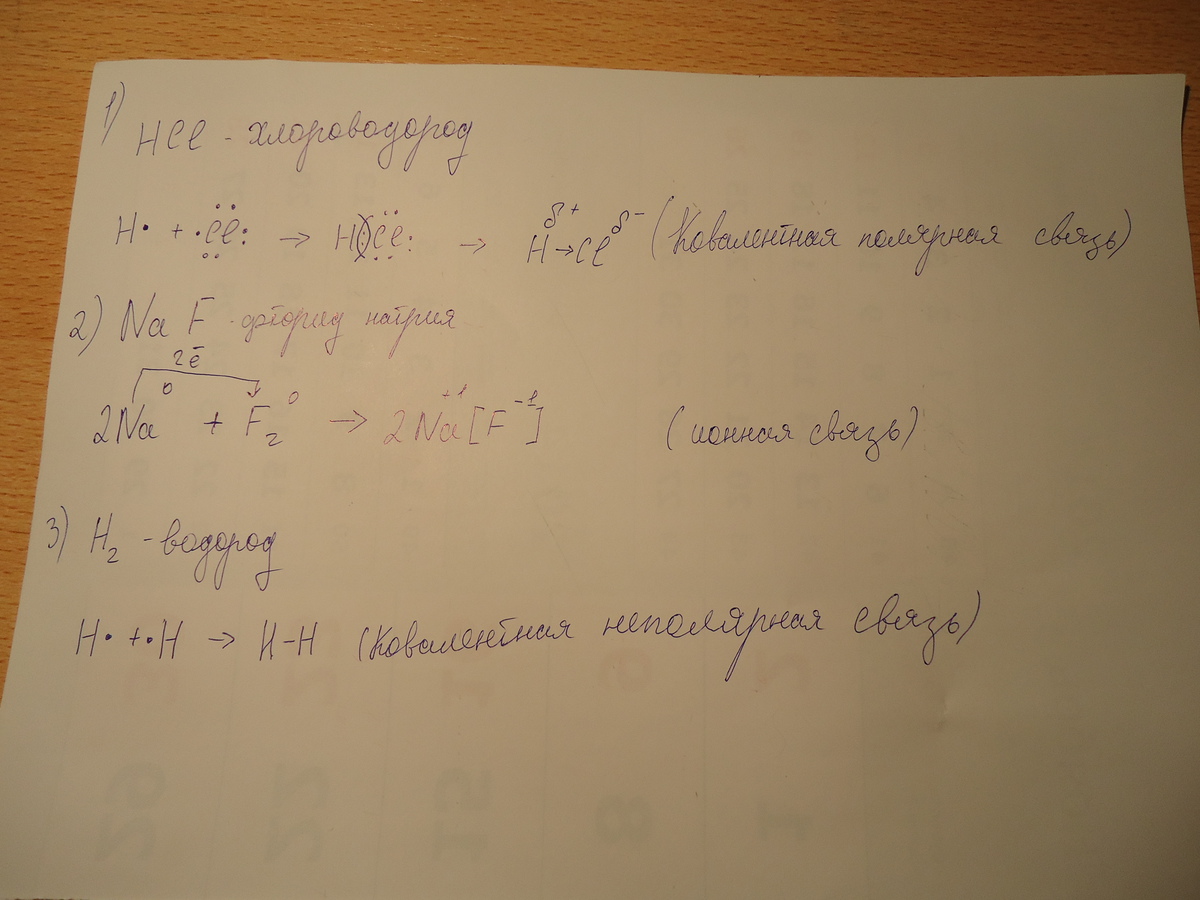 1)
HCl - хлороводород
H· + ·C̈l̤: → H(:)C̈l̤: → Hδ+→Clδ- (Ковалентная полярная связь)
2) NaF - фторид натрия
2ē
2Na⁰ + F₂⁰ → 2Na⁺¹[F⁻¹] (ионная связь)
3) H₂ - водород
H· + ·H → H-H (Ковалентная неполярная связь)